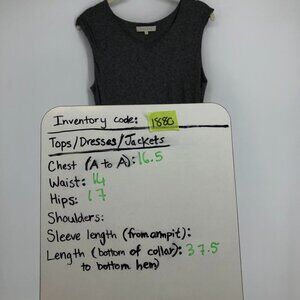 Inventory code: 1880
Tops/Dresses/Jackets
Chest (A to A): 16.5
Waist: 14
Hips: 17
Shoulders:
Sleeve length (from armpit):
Length (bottom of collar): 37.5
to bottom hem)